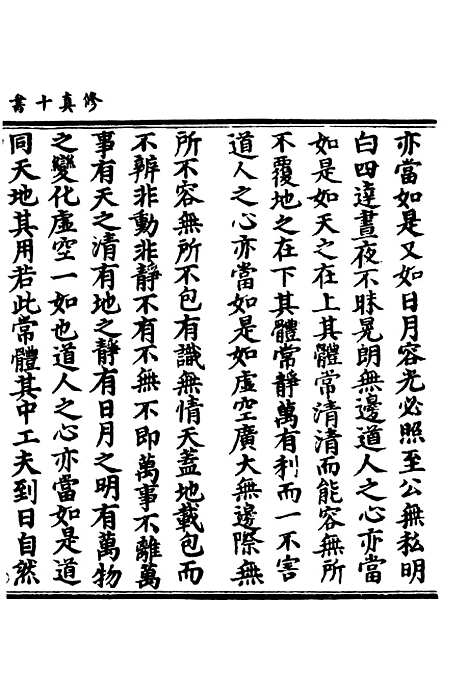 修真十書
亦當如是又如日月容光必照至公無私明
白四達晝夜不昧晃朗無邊道人之心亦當
如是如天之在上其體常清清而能容無所
不覆地之在下其體常靜萬有利而一不害
道人之心亦當如是如虛空廣大無邊際無
所不容無所不包有識無情天蓋地載包而
不辨非動非靜不有不無不即萬事不離萬
事有天之清有地之靜有日月之明有萬物
之變化虛空一如也道人之心亦當如是道
同天地其用若此常體其中工夫到日自然